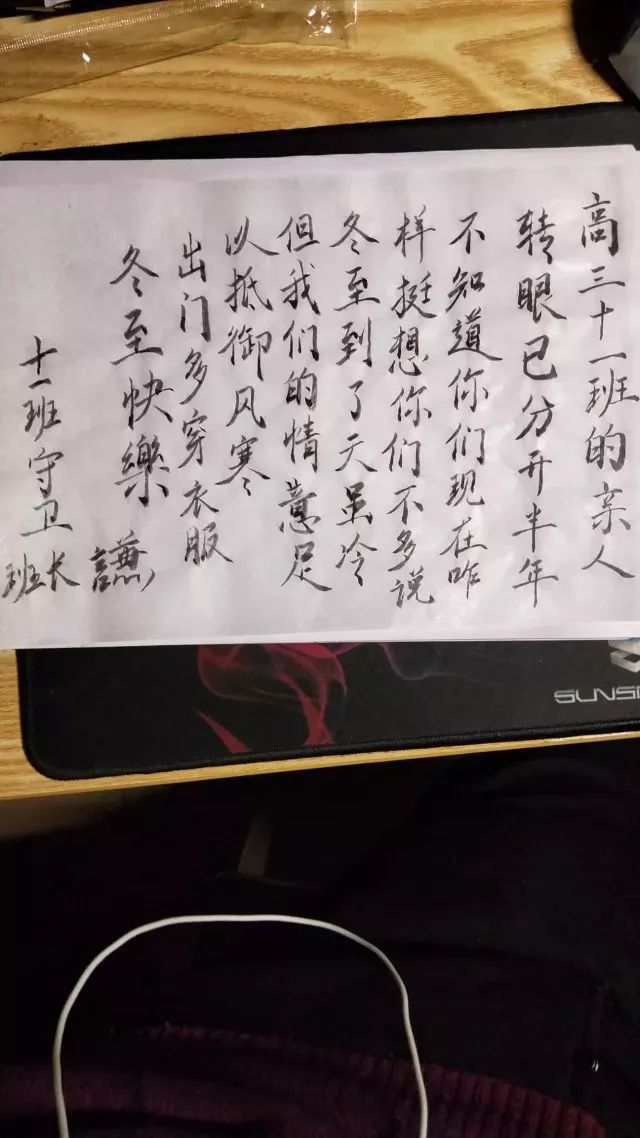 高三十一班的亲人
转眼已分开半年
不知道你们现在咋
样挺想你们不多说
冬至到了天虽冷
但我们的情意足
以抵御风寒
出门多穿衣服
冬至快樂
十一班守卫
班长
謙